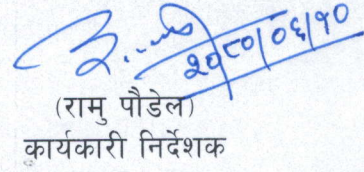 २०८०/०६/१०
(रामु पौडेल)
कार्यकारी निर्देशक